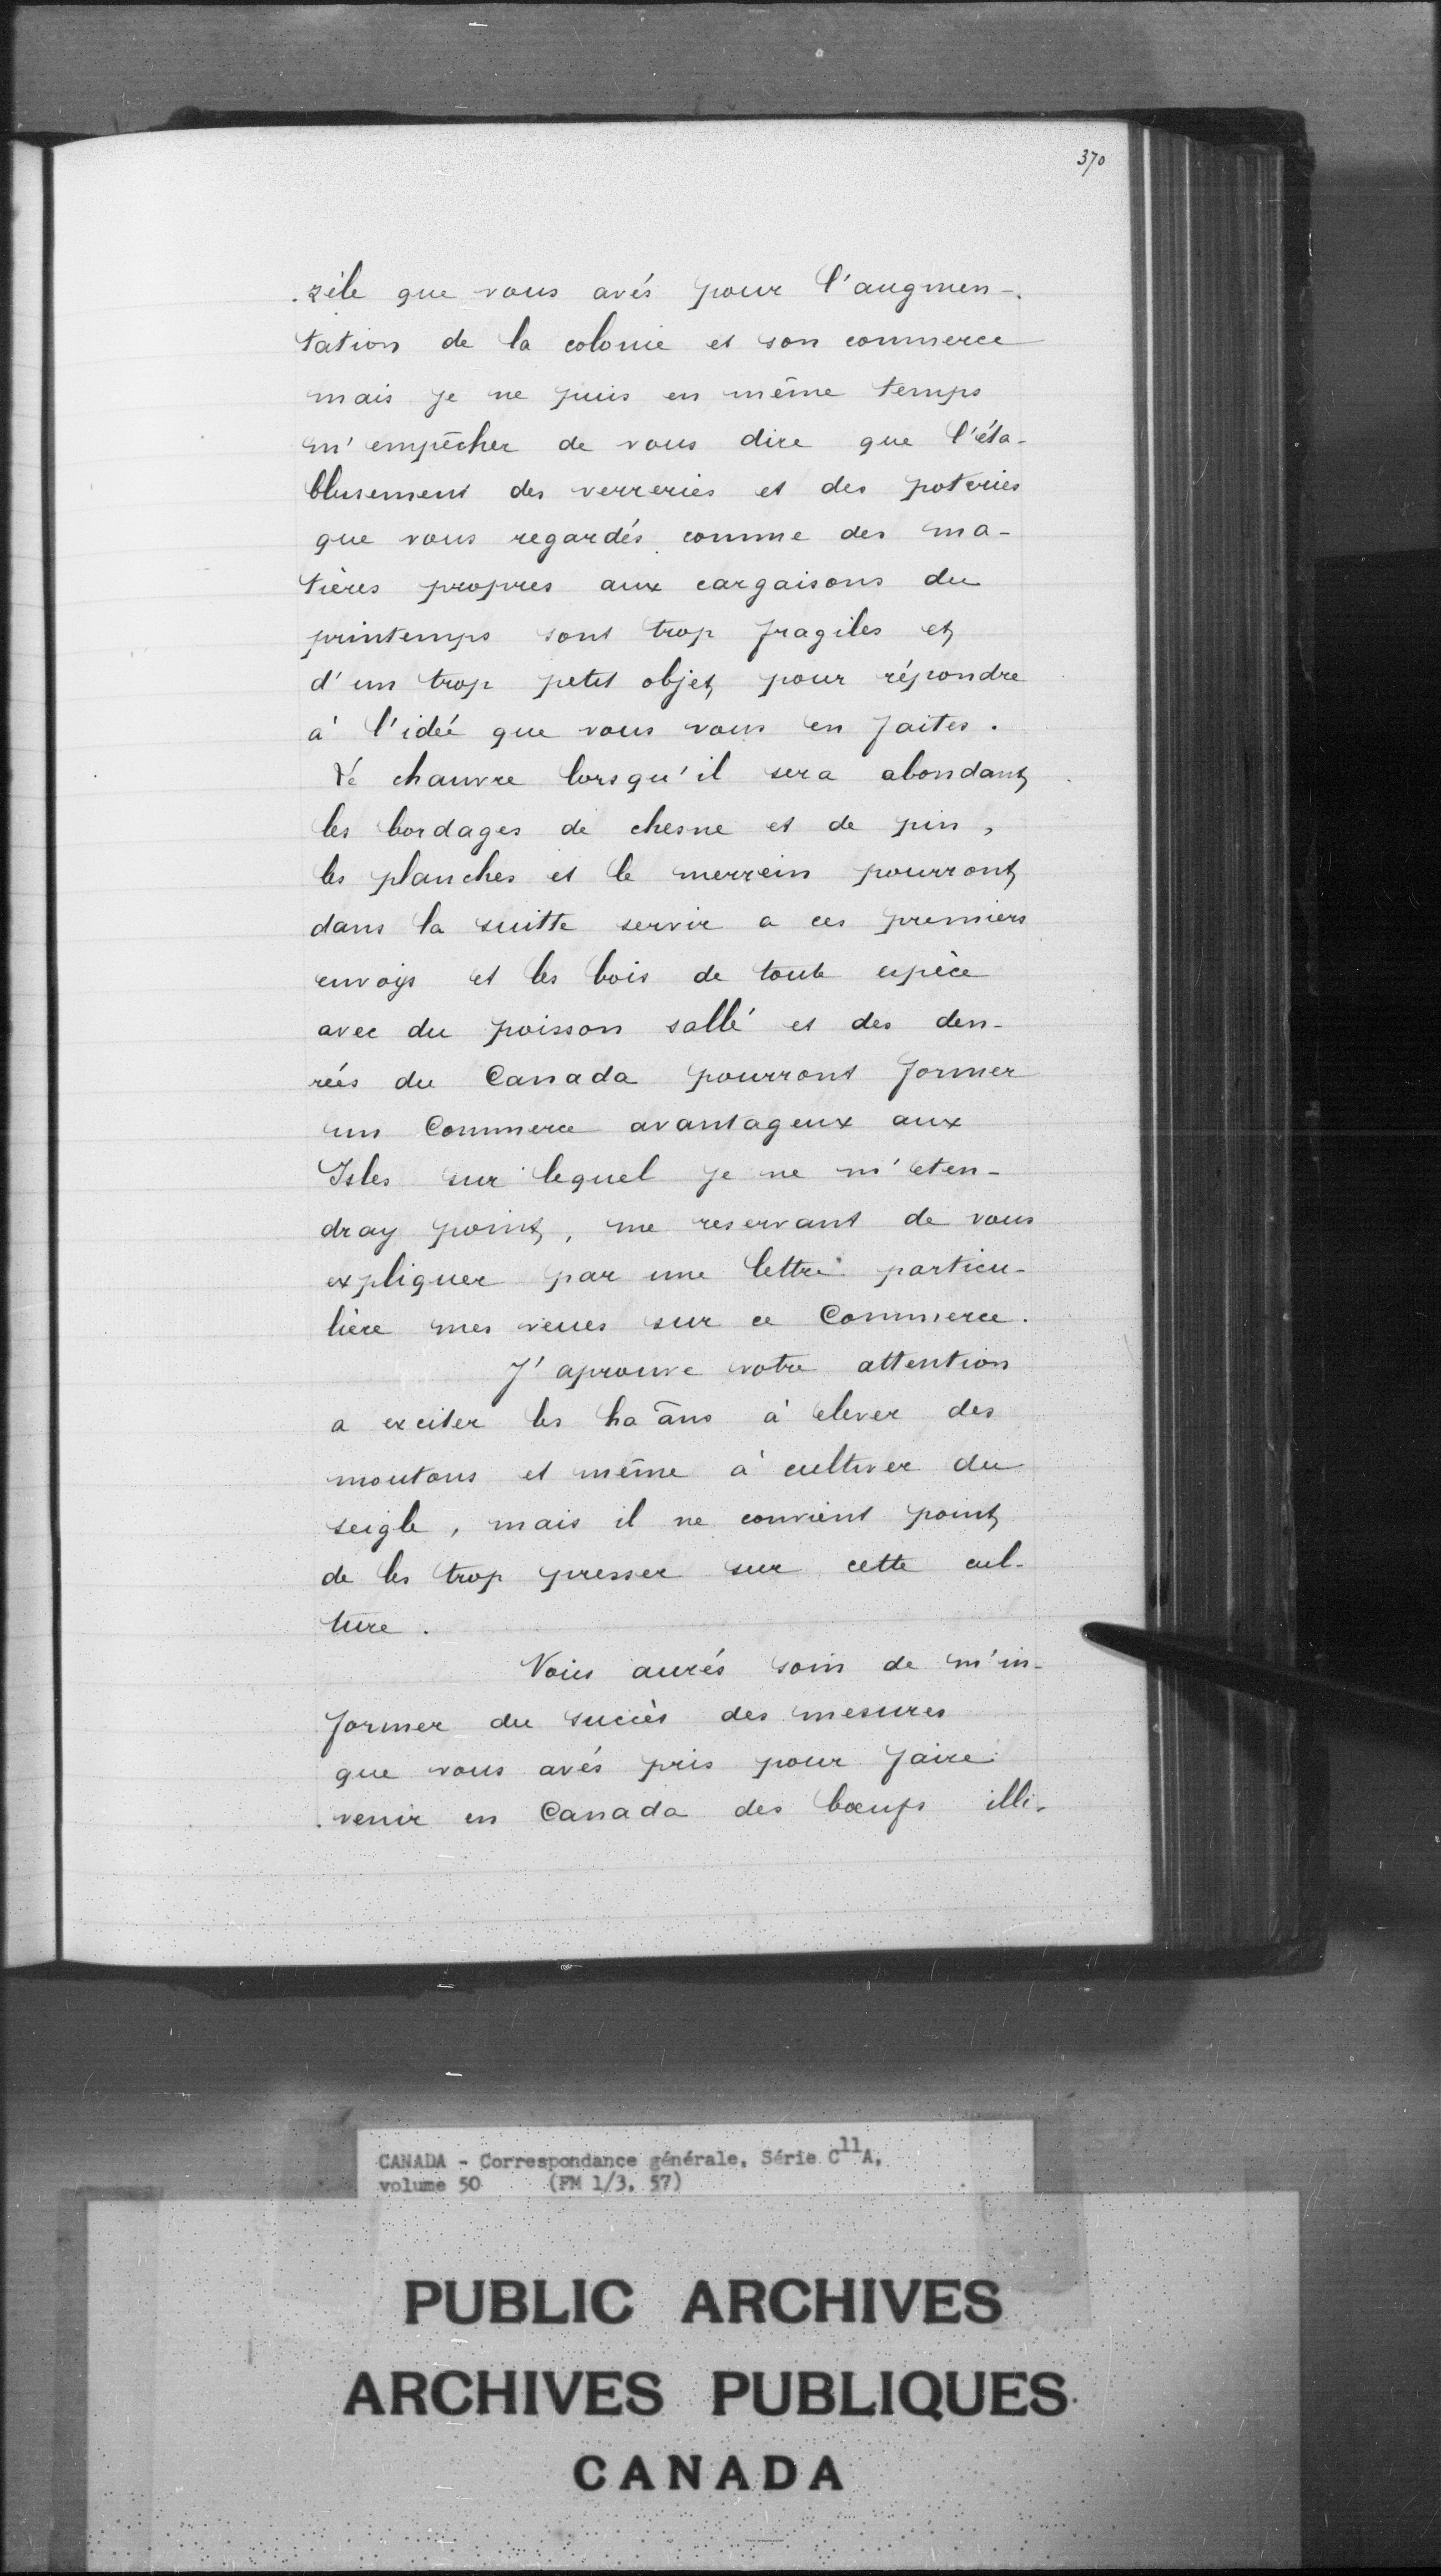 370
zèle que vous avés pour l'augmen-
tation de la colonie et son commerce
mais je ne puis en même temps
m'empêcher de vous dire que l'éta-
blissement des verreries et des poteries
que vous regardés comme des ma-
tières propres aux cargaisons du
printemps sont trop fragiles et
d'un trop petit objet pour répondre
à l'idée que vous vous en faites.
Le chanvre lorsqu'il sera abondant
les bordages de chesne et de pin,
les planches et le merrein pourront
dans la suitte servir a ces premiers
envoys et les bois de toute espèce
avec du poisson sallé et des den-
rées du Canada pourront former
un Commerce avantageux aux
Isles sur lequel je ne m'eten-
dray point, me reservant de vous
expliquer par une lettre particu-
lière mes veues sur ce Commerce.
J'aprouve votre attention
a exciter les ha ans à elever des
moutons et même à cultiver du
seigle, mais il ne convient point
de les trop presser sur cette cul-
ture.
Vous aurés soin de m'in-
former du succès des mesures
que vous avés pris pour faire
venir en Canada des bœufs illi-
CANADA - Correspondance générale, Série C11A,
volume 50 (FM 1/3, 57)
PUBLIC ARCHIVES
ARCHIVES PUBLIQUES
CANADA